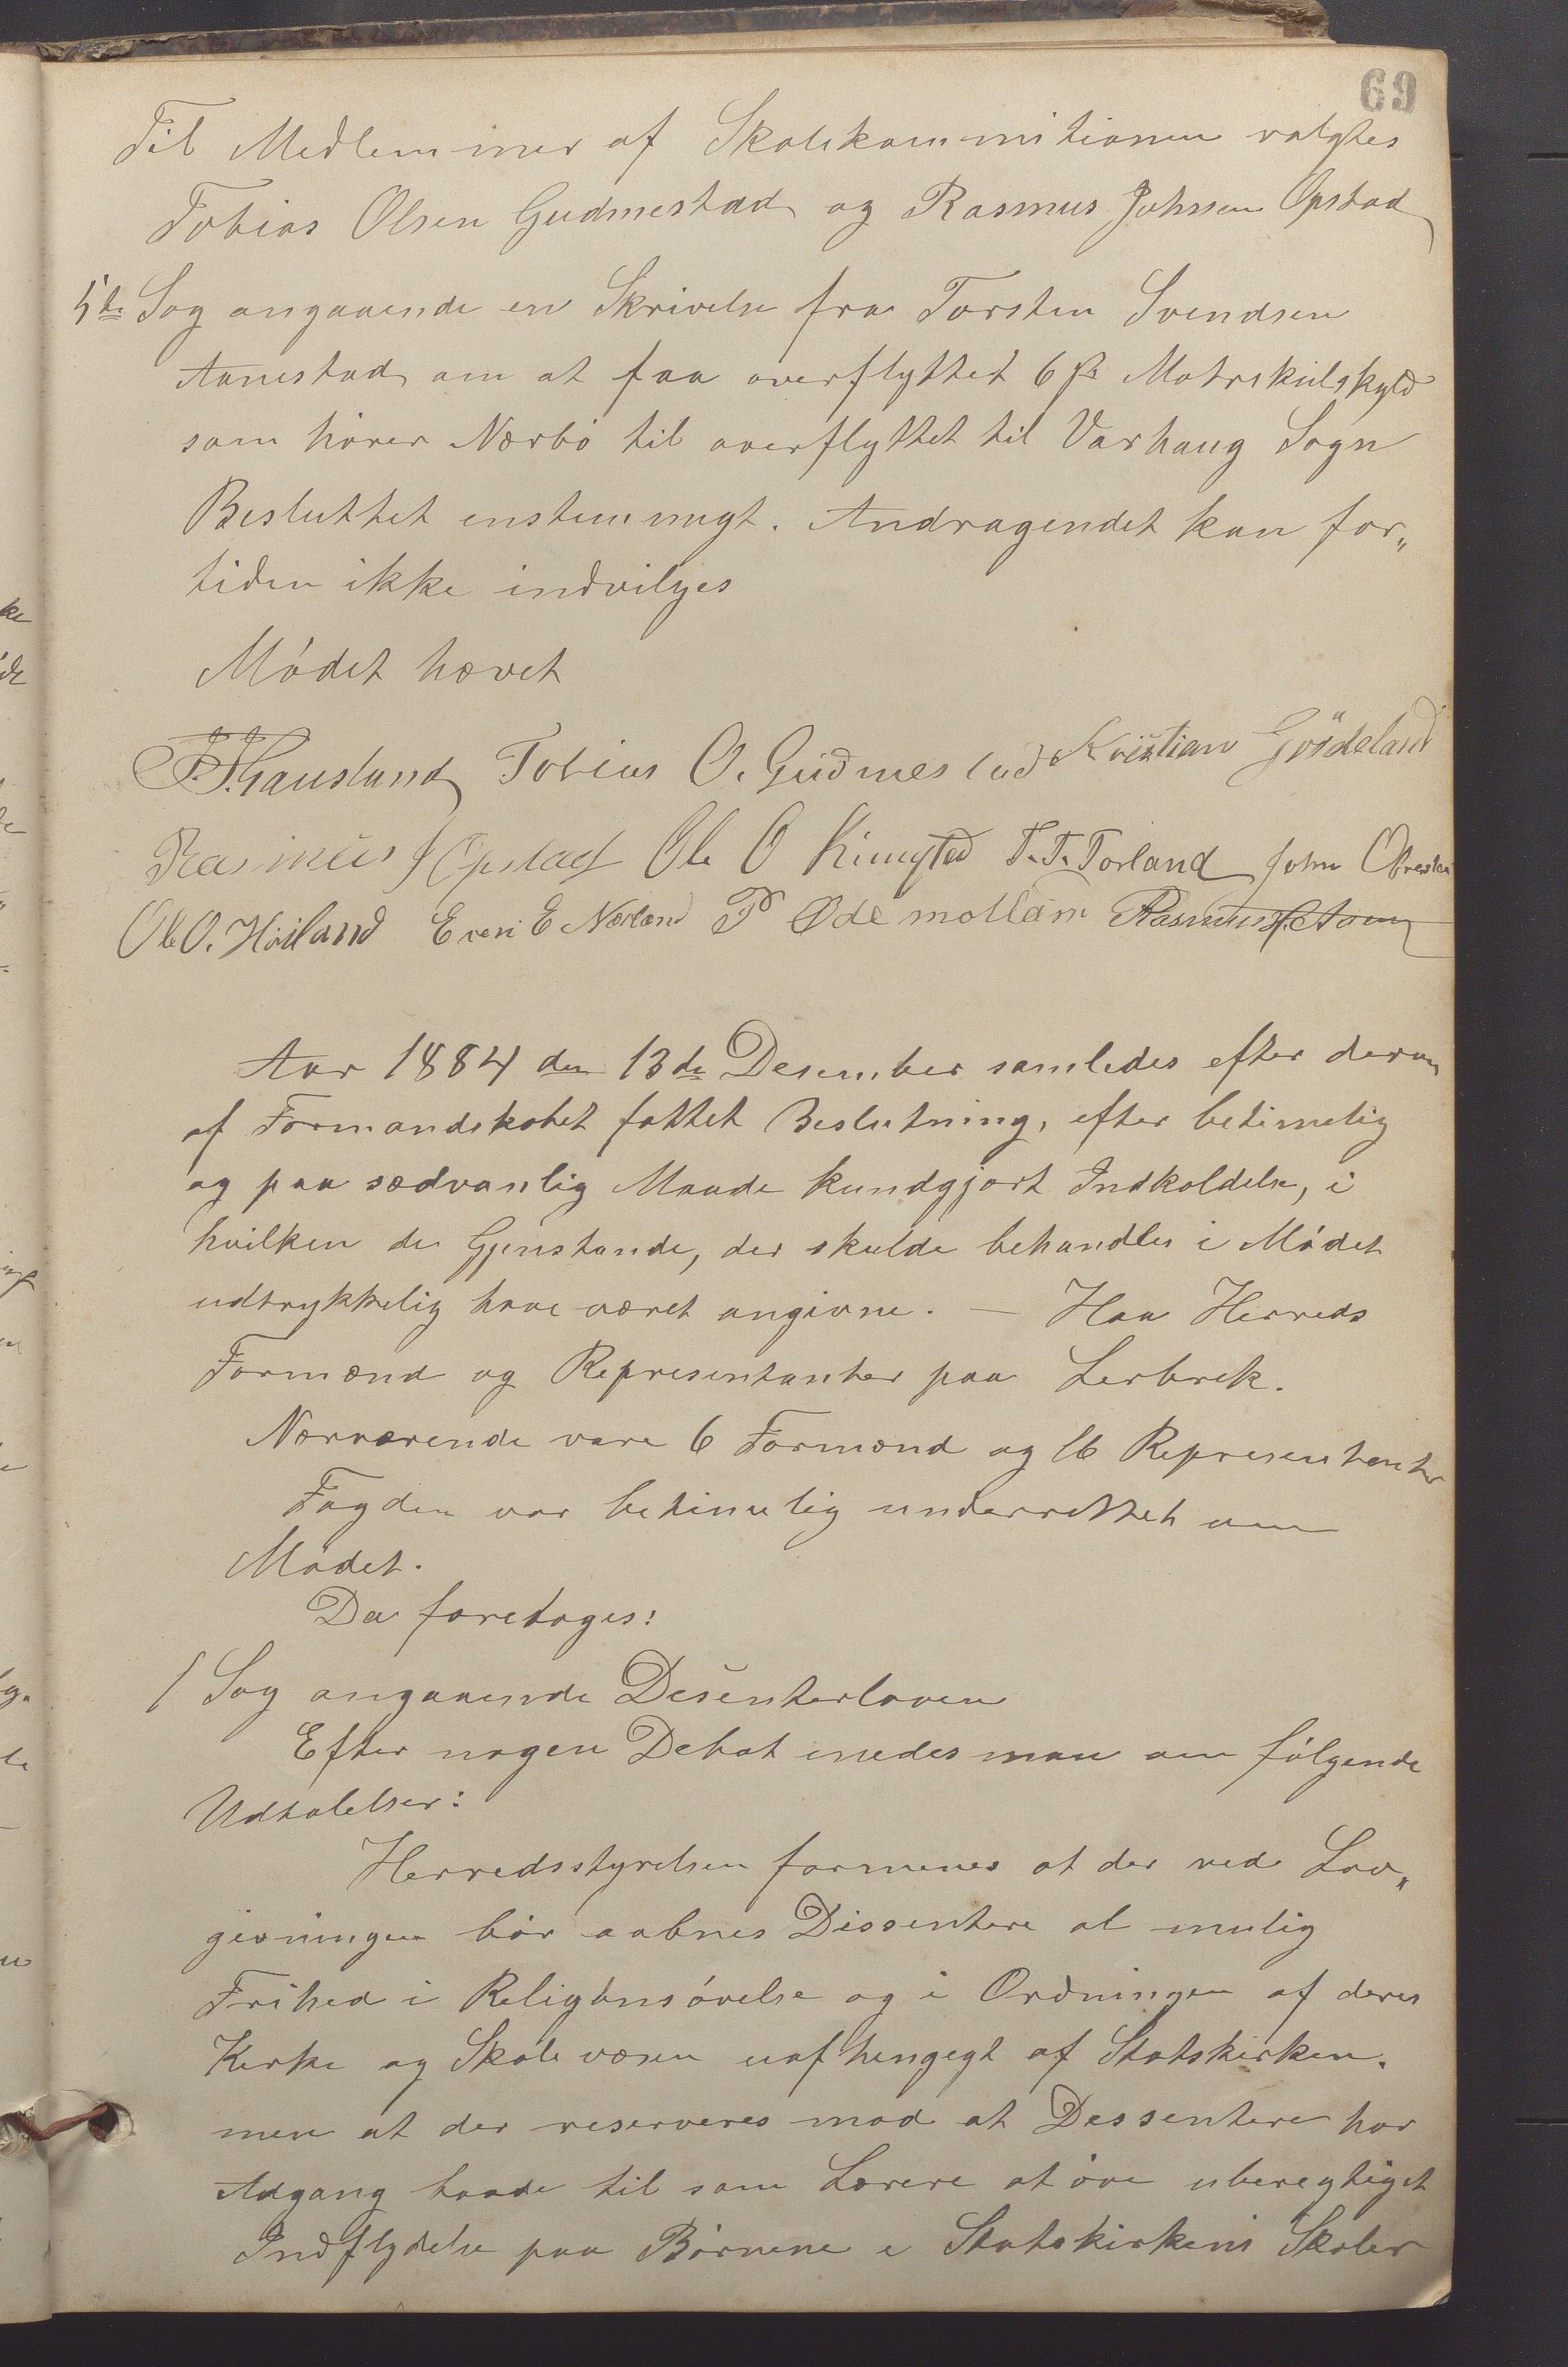 69
Til Medlemmer af Skolekommitionen valgtes
Tobias Olsen Gudmestad og Rasmus Johnsen Opstad
5te Sag angaaende en Skrivelse fra Torsten Svendsen
Aanestad om at faa overflyttet 6 ß Matrikulskyld
som hører Nærbø til overflyttet til Varhaug Sogn
Besluttet enstemmigt. Andragendet kan for„
tiden ikke indvilges
Mødet hævet
Tobias O. Gudmestad Kristian Gjødeland
Rasmus J Opstad Ole O T. T. Torland John Obrestad
Ole O. Høiland Even E Nærland P Ødemotland Rasmus
Aar 1884 den 13de Desember samledes efter derom
af Formandskabet fattet Beslutning, efter betimelig
og paa sædvanlig Maade kundgjort Indkaldelse, i
hvilken de Gjenstande, der skulde behandles i Mødet
udtrykkelig have været angivne. — Haa Herreds
Formænd og Representanter paa Lerbrek.
Nærværende vare 6 Formænd og 16 Representanter
Fogden var betimelig underrettet om
Mødet.
Da foretoges:
1 Sag angaaende Desenterloven
Efter nogen Debat enedes man om følgende
Udtalelser:
Herredsstyrelsen formenes at der ved Lov„
givningen bør aabnes Dissentere al mulig
Frihed i Religonsøvelse og i Ordningen af deres
Kirke og Skolevæsen uafhengegt af Statskirken.
men at der reserveres mod at Dessentere har
Adgang baade til som Lærere at øve uberegtiget
Indflydelse paa Børnene i Statskirkens Skoler